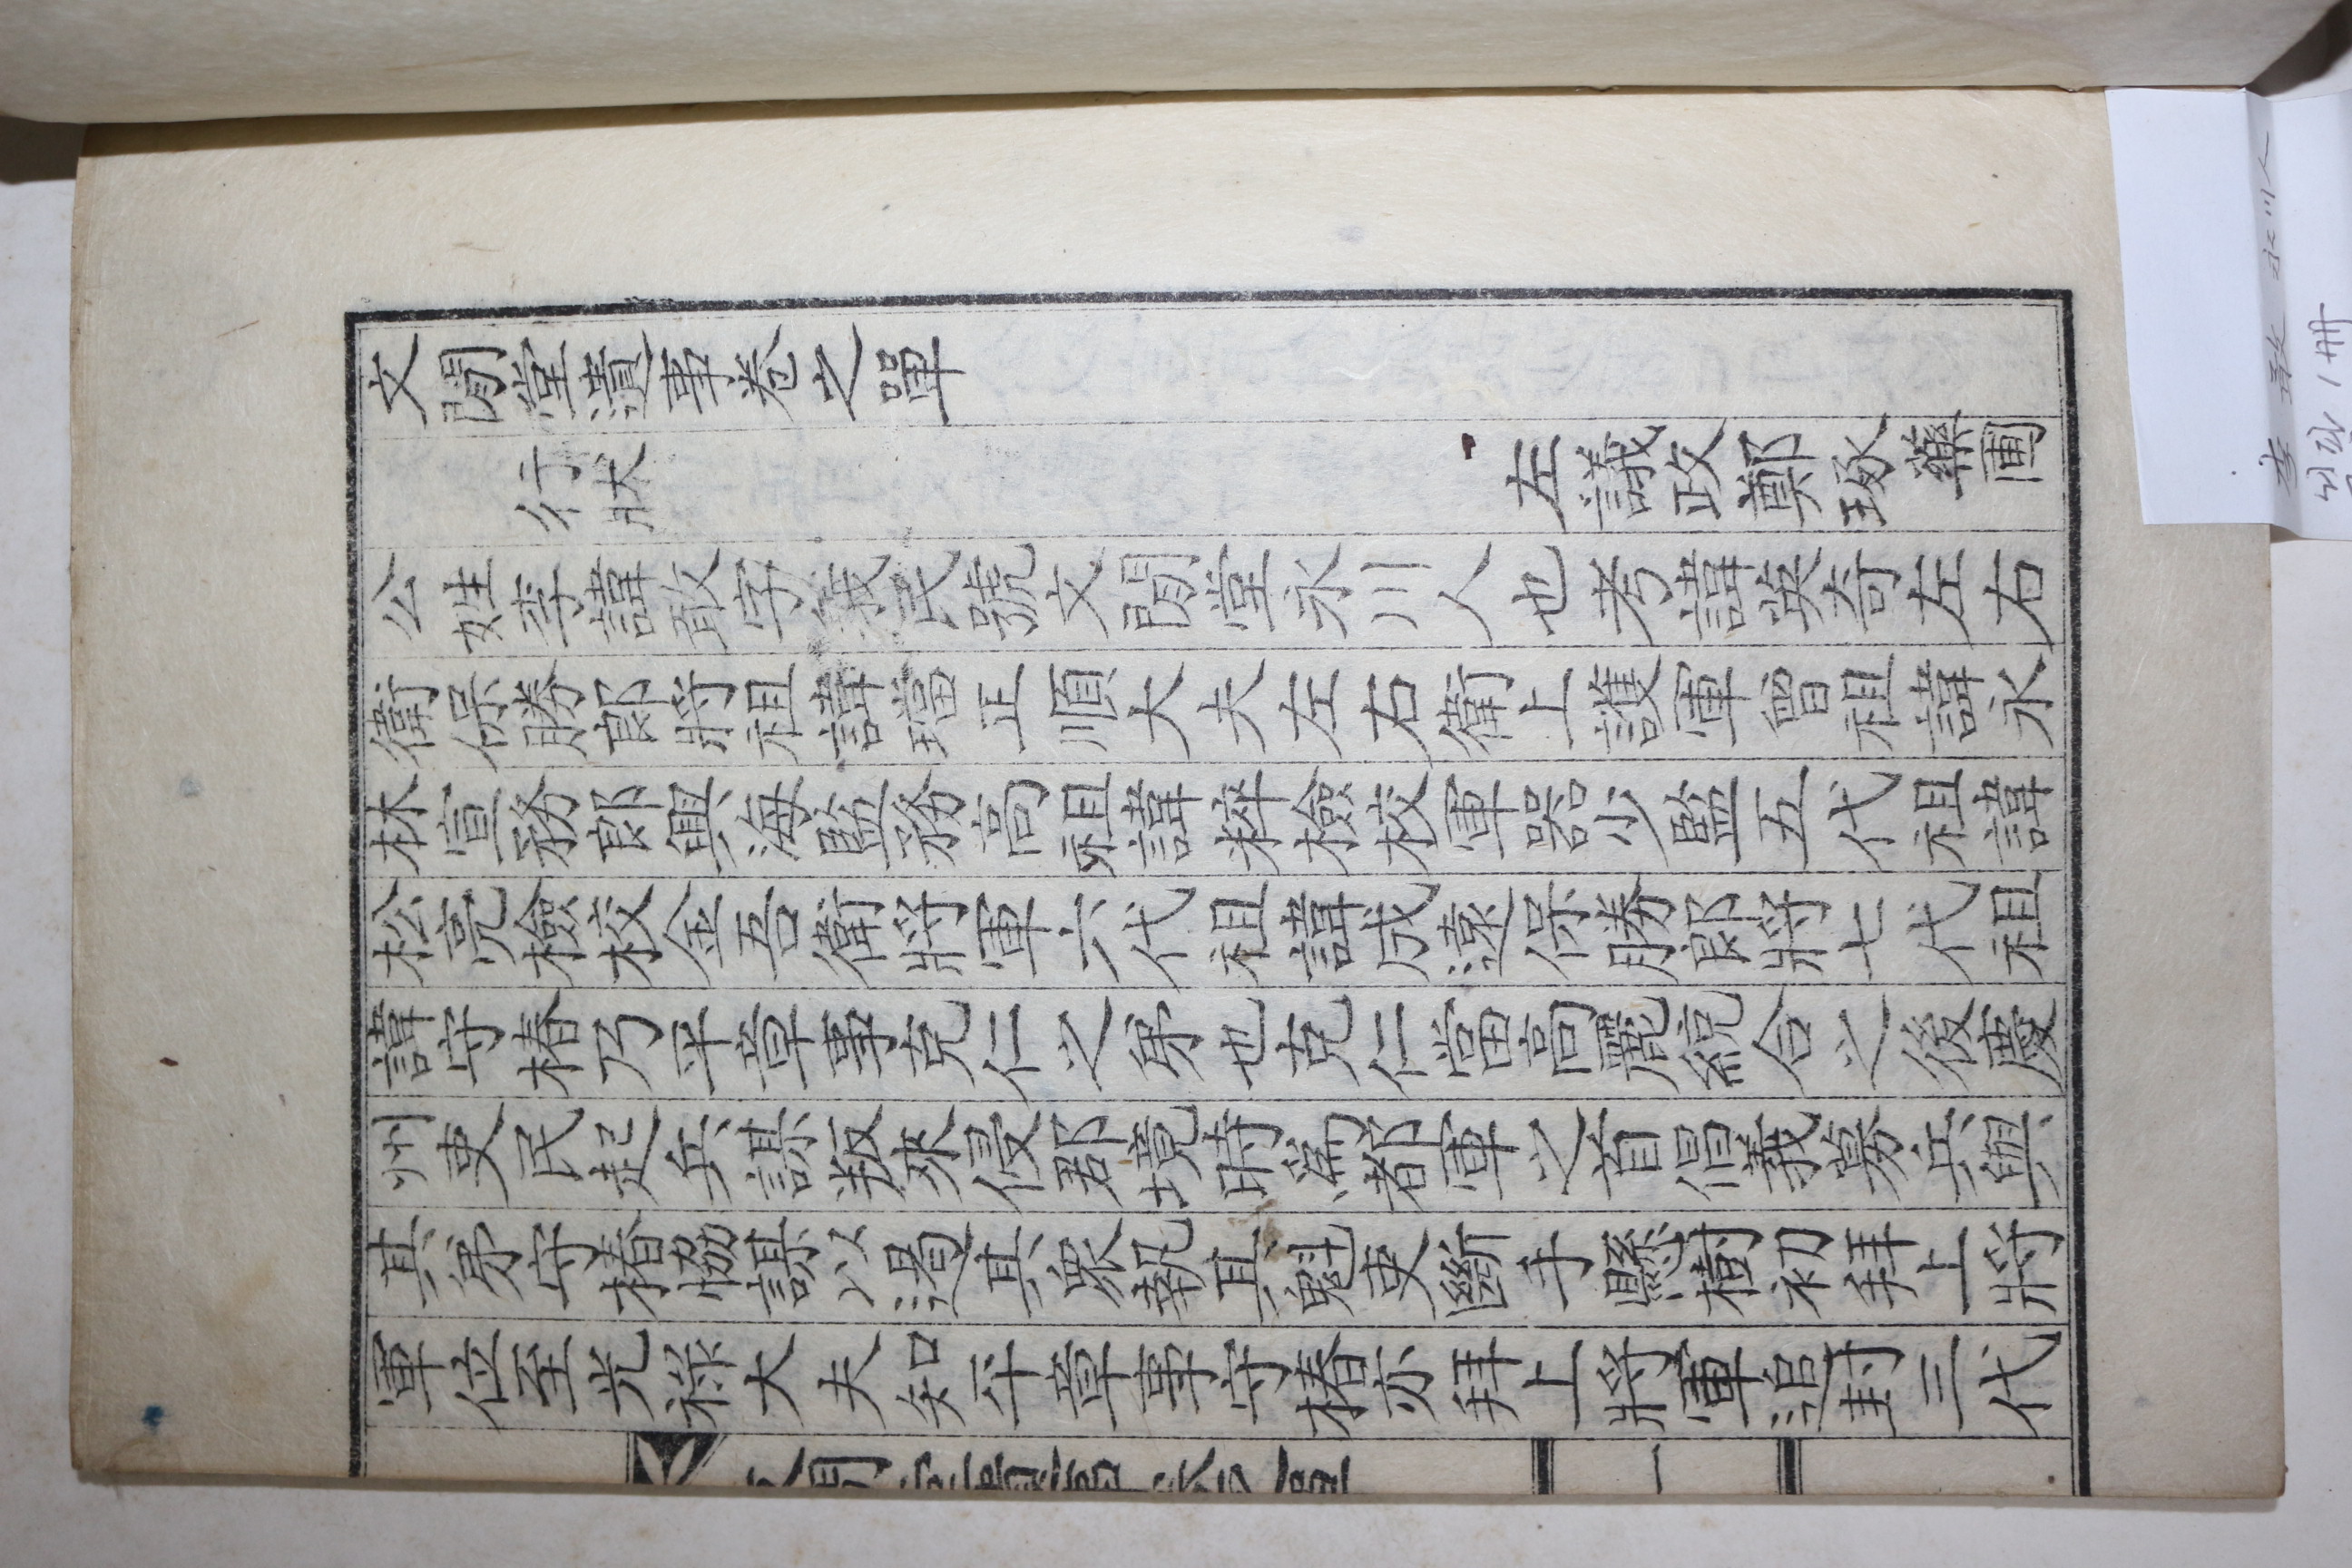 文閒堂遺事卷之單
行狀 左議政鄭琢藥圃
公姓李諱敢字義民號文閒堂永川人也考諱英奇左右
衛保勝郎將祖諱璫正順大夫左右衛上護軍曾祖諱永
林宣務郎興海監務高祖諱粹檢校軍器少監五代祖諱
松亮檢校金吾衛將軍六代祖諱成遠保勝郎將七代祖
諱守椿乃平章事克仁之弟也克仁當高麗統合之後慶
州吏民起兵謀叛來侵郡境時爲都軍之首倡義募兵與
其弟守椿恊謀以遏其衆執其魁吏斷手懸樹初拜上將
軍位至光祿大夫知平章事守椿亦拜上將軍追封三代
一
李敢 永川人
1冊